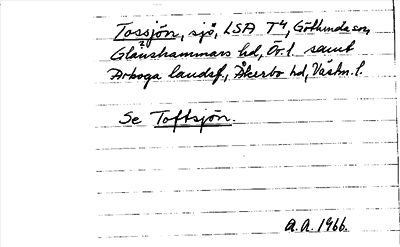 Tossjön, sjö, LSA T4, Götlunda sn,
Glanshammars hd, Ör. l. samt
Arboga landsf., Åkerbo hd, Västm. l.
Se Toftsjön.
A.A. 1966.